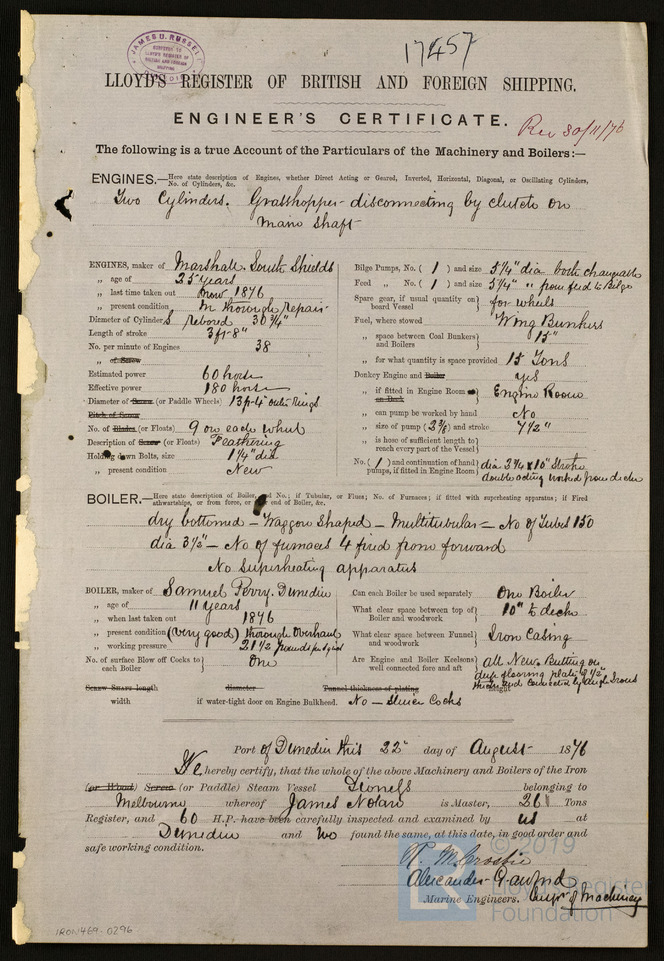 JAMES U. RUSSELL
SURVEYOR TO
LLOYD'S REGISTER OF
BRITISH AND FOREIGN
SHIPPING
17457
LLOYD'S REGISTER OF BRITISH AND FOREIGN SHIPPING.
ENGINEER'S CERTIFICATE.
Rec 30/11/76
The following is a true Account of the Particulars of the Machinery and Boilers:—
ENGINES.—Here state description of Engines, whether Direct Acting or Geared, Inverted, Horizontal, Diagonal, or Oscillating Cylinders,
No. of Cylinders, &c.
Two Cylinders. Grasshopper - disconnecting by clutch on
Main Shaft
ENGINES, maker of Marshall South Shields
„ age of 25 years
„ last time taken out now 1876
„ present condition In thorough repair
Diameter of Cylinders rebored 30 3/4"
Length of stroke 3ft-8"
No. per minute of Engines 38
„ of Screw
Estimated power 60 horse
Effective power 180 horse
Diameter of Screw (or Paddle Wheels) 13ft-4" outer rings
Pitch of Screw
No. of Blades (or Floats) 9 on each wheel
Description of Screw (or Floats) Feathering
Holding down Bolts, size 1 1/4" dia
„ present condition New
Bilge Pumps, No. ( 1 ) and size 5 1/4" dia both changeable
Feed „ No. ( 1 ) and size 5 1/4" „ from feed to Bilge
Spare gear, if usual quantity on board Vessel } for wheels
Fuel, where stowed Wing Bunkers
„ space between Coal Bunkers and Boilers } 15"
„ for what quantity is space provided 15 Tons
Donkey Engine and Boiler yes
„ if fitted in Engine Room or on Deck } Engine Room
„ can pump be worked by hand No
„ size of pump (2 3/8) and stroke 7 1/2"
„ is hose of sufficient length to reach every part of the Vessel }
No. ( 1 ) and continuation of hand pumps, if fitted in Engine Room } dia 3 3/4 x 10" Stroke
double acting worked from deck
BOILER.—Here state description of Boiler, and No.; if Tubular, or Flues; No. of Furnaces; if fitted with superheating apparatus; if Fired
athwartships, or from fore, or after end of Boiler, &c.
dry bottomed - Waggon Shaped - Multitubular - No of Tubes 150
dia 3 1/2" - No of furnaces 4 fired from forward
No Superheating apparatus
BOILER, maker of Samuel Perry. Dunedin
„ age of 11 years
„ when last taken out 1876
„ present condition (very good) thorough overhaul
„ working pressure 21 1/2 pounds
No. of surface Blow off Cocks to each Boiler } One
Can each Boiler be used separately One Boiler
What clear space between top of Boiler and woodwork } 10" to deck
What clear space between Funnel and woodwork } Iron Casing
Are Engine and Boiler Keelsons well connected fore and aft } all New. Butting on
deep flooring plate of 1/2"
thick and connected by angle Irons
Screw Shafts length diameter Tunnel thickness of plating height
width if water-tight door on Engine Bulkhead. No - Sluice Cocks
Port of Dunedin this 22d day of August 1876
We hereby certify, that the whole of the above Machinery and Boilers of the Iron
(or Wood) Screw (or Paddle) Steam Vessel belonging to
Melbourne whereof James Nolan is Master, 261 Tons
Register, and 60 H.P. have been carefully inspected and examined by us at
Dunedin and we found the same, at this date, in good order and
safe working condition.
Alexander Crawford
Marine Engineers. of Machinery
IRON469-0296
© 2019
Lloyd's Register
Foundation